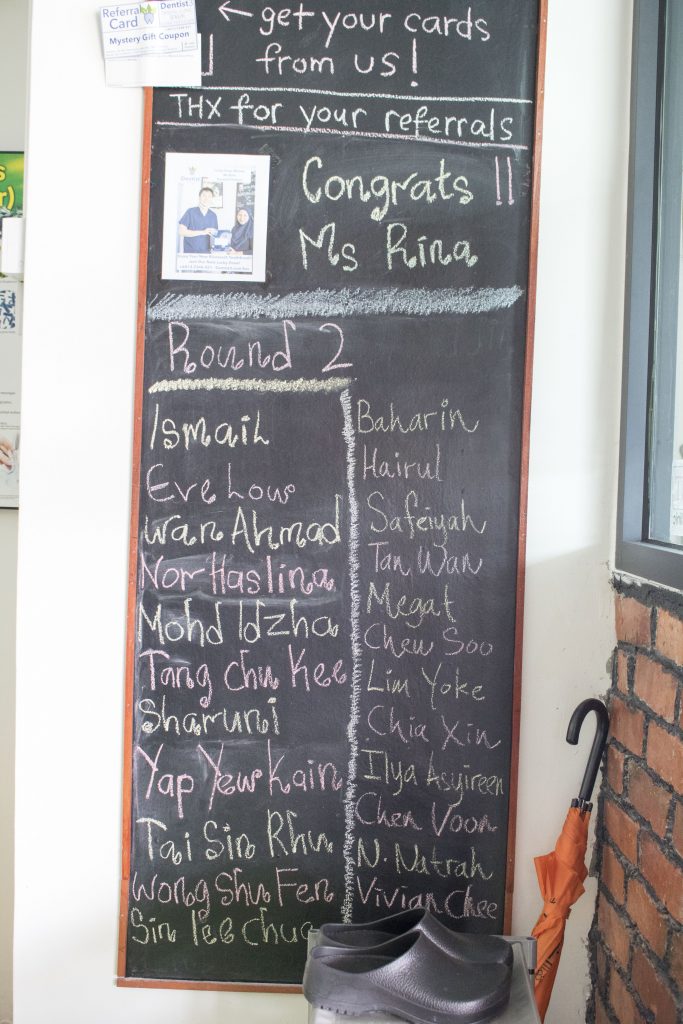 Referral
Card
Dentist
Mystery Gift Coupon
← get your cards
from us!
THX for your referrals
Congrats !!
Ms Rina
Round 2
Ismail
Eve Low
Wan Ahmad
Nor Haslina
Mohd Idzha
Tang chu Kee
Sharuni
Yap Yew Kain
Tai Sin Rhu
Wong Shu Fen
Sin lee chua
Baharin
Hairul
Safeiyah
Tan Wan
Megat
Chew Soo
Lim Yoke
Chia Xin
Ilya Asyireen
Chen Voon
N. Natrah
Vivian Chee